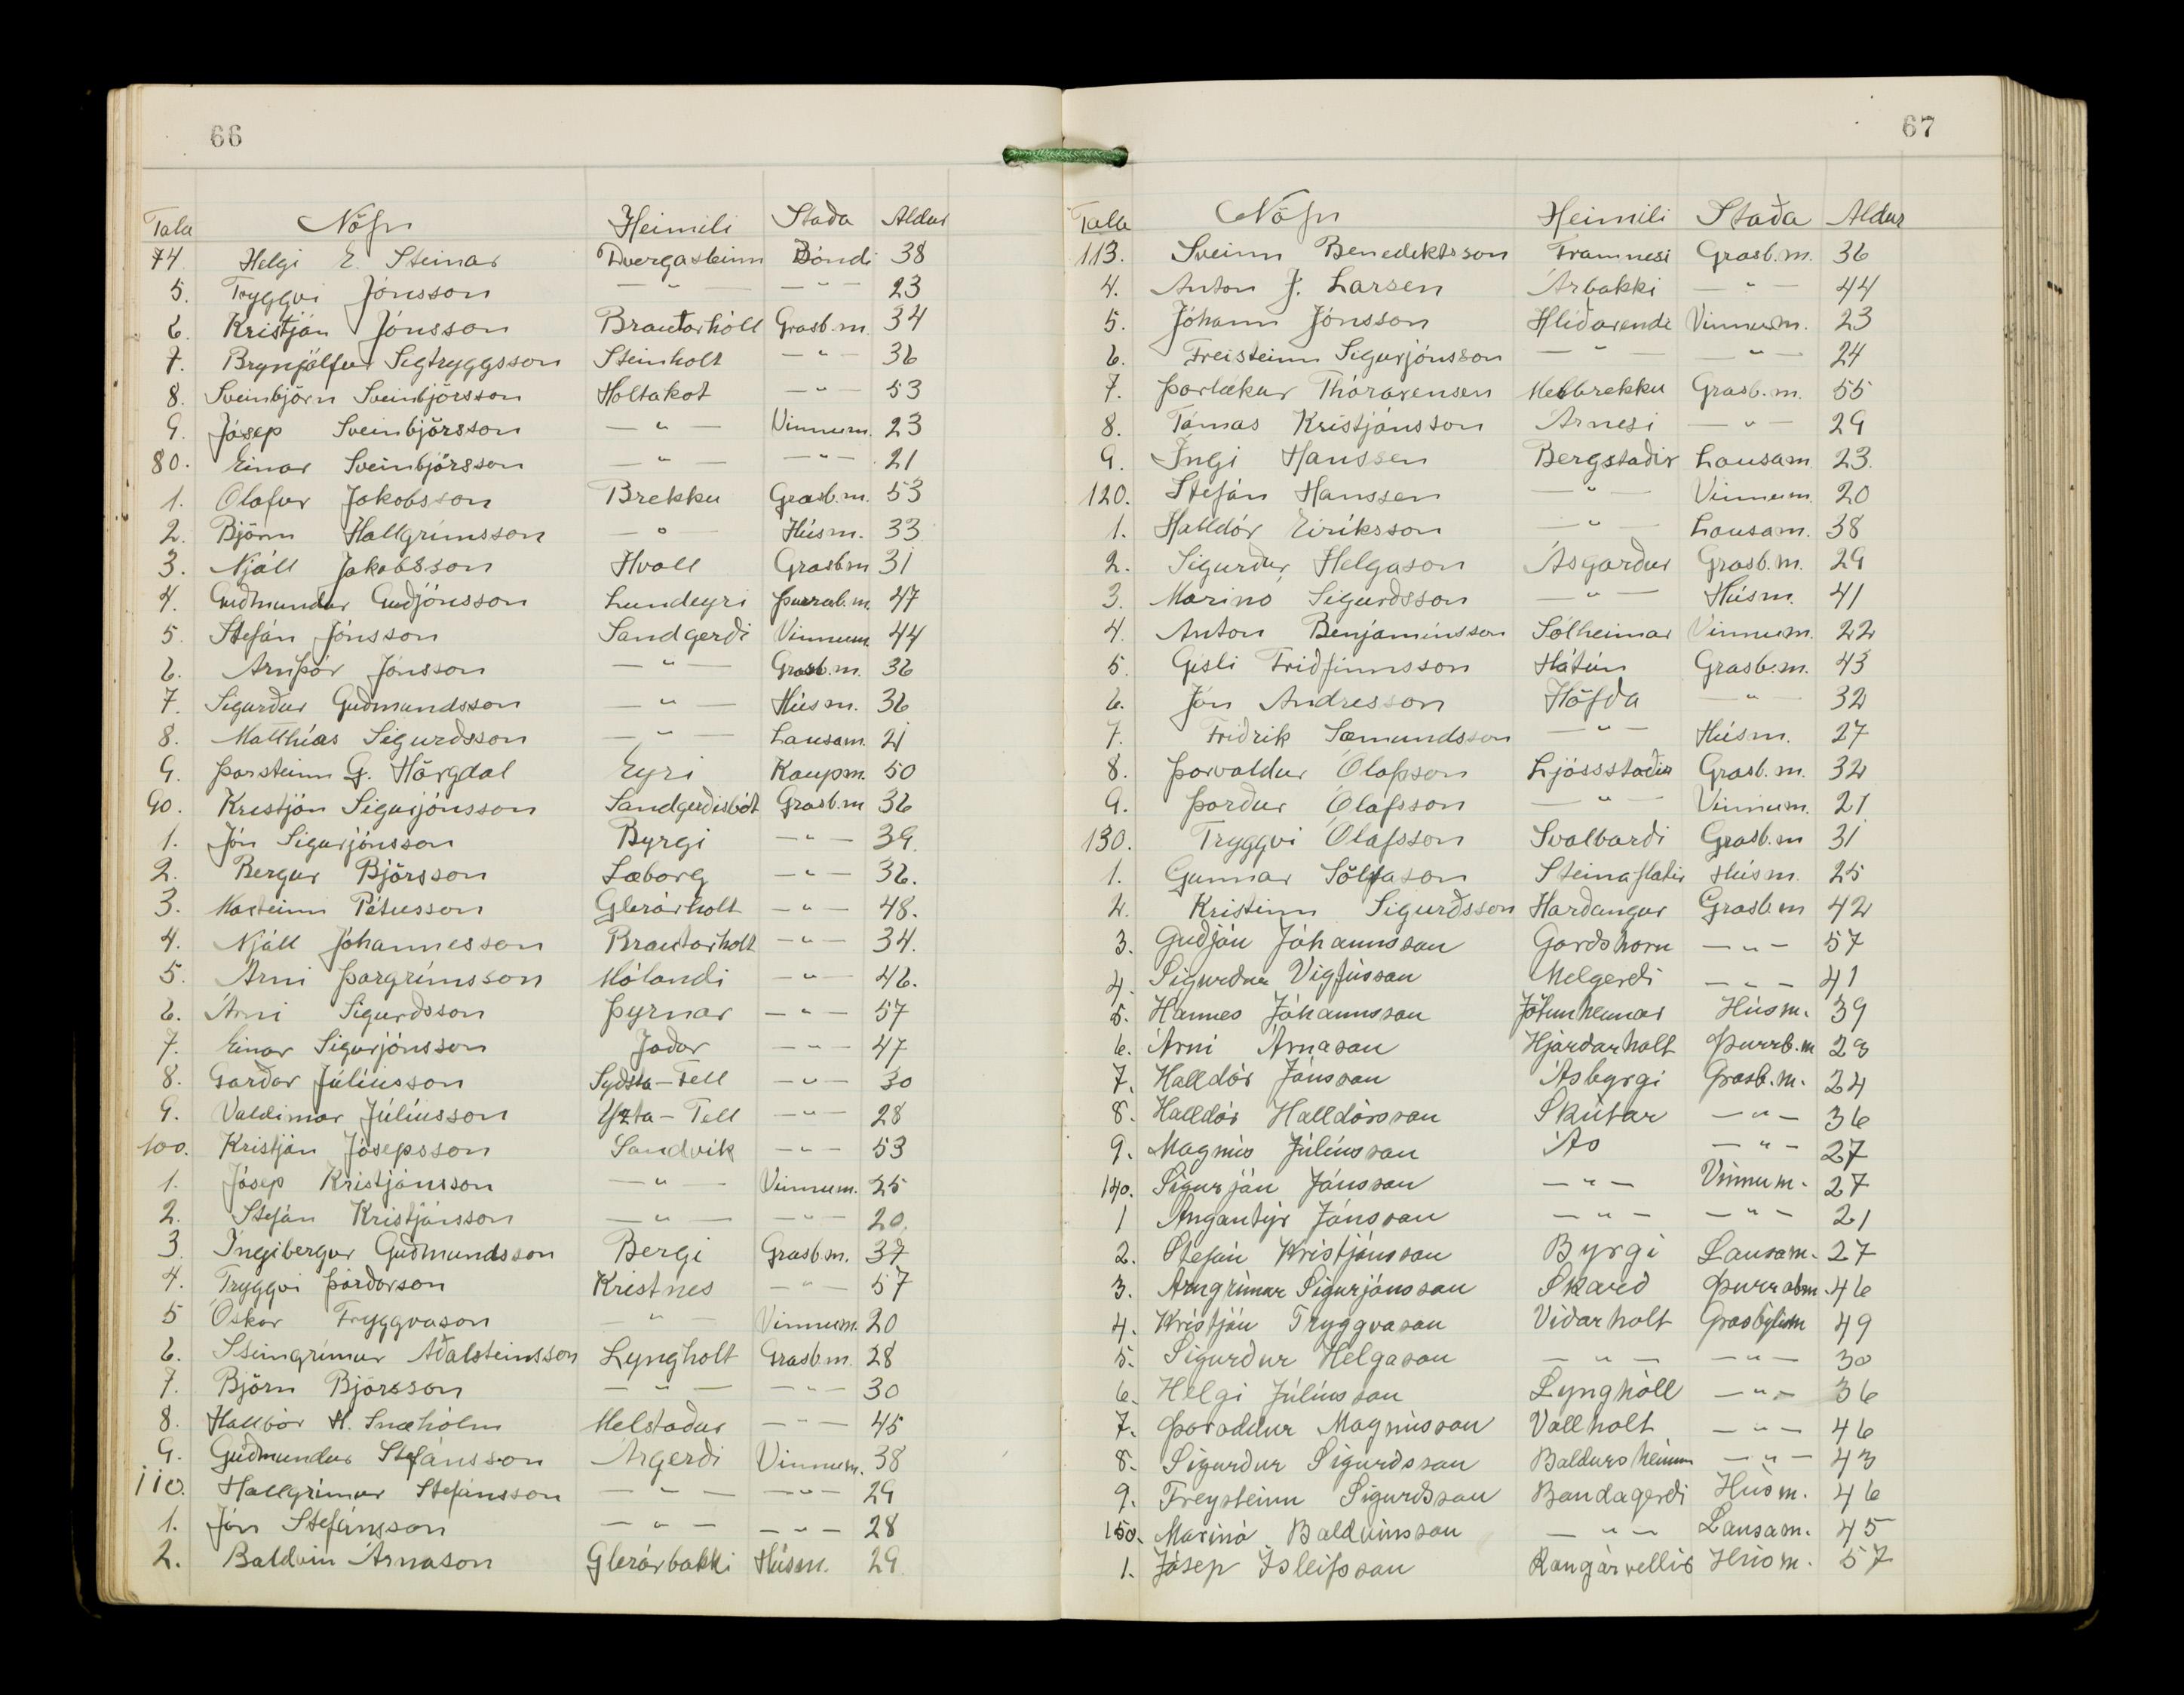 66
Tala Nöfn Heimili Staða Aldur
74. Helgi E. Steinar Dvergasteinn Bóndi 38
5. Tryggvi Jónsson — " — — " — 23
6. Kristján Jónsson Brautarhóll Grasb.m. 34
7. Brynjólfur Sigtryggsson Steinholt — " — 36
8. Sveinbjörn Sveinbjörsson Holtakot — " — 53
9. Jósep Sveinbjörsson — " — Vinnum. 23
80. Einar Sveinbjörsson — " — — " — 21
1. Ólafur Jakobsson Brekku Grasb.m. 53
2. Björn Hallgrímsson — " — Húsm. 33
3. Njáll Jakobsson Hvoll Grasbm 31
4. Guðmundur Guðjónsson Lundeyri Þurrab.m. 47
5. Stefán Jónsson Sandgerði Vinnum. 44
6. Arnþór Jónsson — " — Grasb.m. 36
7. Sigurður Guðmundsson — " — Húsm. 36
8. Matthías Sigurðsson — " — Lausam. 21
9. Þorsteinn G. Hörgdal Eyri Kaupm. 50
90. Kristján Sigurjónsson Sandgerðisbót Grasb.m 36
1. Jón Sigurjónsson Byrgi — " — 39.
2. Bergur Björsson Sæborg — " — 36.
3. Marteinn Pétusson Glerárholt — " — 48.
4. Njáll Jóhannesson Brautarholt — " — 34.
5. Árni Þorgrímsson Mólandi — " — 46.
6. Árni Sigurðsson Þyrnar — " — 57
7. Einar Sigurjónsson Jaðar — " — 47
8. Garðar Júlíusson Syðsta-Fell — " — 30
9. Valdimar Júlíusson Yzta-Fell — " — 28
100. Kristján Jósepsson Sandvík — " — 53
1. Jósep Kristjánsson — " — Vinnum. 25
2. Stefán Kristjánsson — " — — " — 20.
3. Ingibergur Guðmundsson Bergi Grasbm. 37
4. Tryggvi Þórðarson Kristnes — " — 57
5 Óskar Tryggvason — " — Vinnum. 20
6. Steingrímur Aðalsteinsson Lyngholt Grasbm. 28
7. Björn Björsson — " — — " — 30
8. Halldór H. Snæhólm Melstaður — " — 45
9. Guðmundur Stefánsson Árgerði Vinnum. 38
110. Hallgrímur Stefánsson — " — — " — 29
1. Jón Stefánsson — " — — " — 28
2. Baldvin Árnason Glerárbakki Húsm. 29.
67
Tala Nöfn Heimili Staða Aldur
113. Sveinn Benediktsson Framnesi Grasb.m. 36
4. Anton J. Larsen Árbakki — " — 44
5. Jóhann Jónsson Hlíðarende Vinnum. 23
6. Freisteinn Sigurjónsson — " — — " — 24
7. Þorlákur Thórarensen Melbrekku Grasb.m. 55
8. Tómas Kristjánsson Árnesi — " — 29
9. Ingi Hanssen Bergstaðir Lausam 23.
120. Stefán Hanssen — " — Vinnum. 20
1. Halldór Eiríksson — " — Lausam. 38
2. Sigurður Helgason Ásgarður Grasb.m. 29
3. Marinó Sigurðsson — " — Húsm. 41
4. Anton Benjamínsson Sólheimar Vinnum. 22
5. Gísli Friðfinnsson Hátún Grasb.m. 43
6. Jón Andresson Höfða — " — 32
7. Friðrik Sæmundsson — " — Húsm. 27
8. Þorvaldur Ólafsson Ljósstaðir Grasb.m. 32
9. Þorður Ólafsson — " — Vinnum. 21
130. Tryggvi Ólafsson Svalbarði Grasb.m 31
1. Gunnar Sölfason Steinaflatir Húsm. 25
2. Kristinn Sigurðsson Harðangur Grasb.m 42
3. Guðjón Jóhannsson Garðshorn — " — 57
4. Sigurður Vigfússon Melgerði — " — 41
5. Hannes Jóhannsson Jötunheimar Húsm. 39
6. Árni Árnason Hjarðarholt Þurrb.m 23
7. Halldór Jónsson Ásbyrgi Grasb.m. 24
8. Halldór Halldórsson Skútar — " — 36
9. Magnús Júlíusson Ás — " — 27
140. Sigurján Jónsson — " — Vinnum. 27
1 Angantýr Jónsson — " — — " — 21
2. Stefán Kristjánsson Byrgi Lausam. 27
3. Arngrímur Sigurjónsson Skarð Þurrabm. 46
4. Kristján Tryggvason Viðarholt Grasbýlism 49
5. Sigurður Helgason — " — — " — 30
6. Helgi Júlíusson Lynghóll — " — 36
7. Þoroddur Magnússon Vallholt — " — 46
8. Sigurður Sigurðsson Baldursheimi — " — 43
9. Freysteinn Sigurðsson Bandagerði Húsm. 46
150. Marinó Baldvinsson — " — Lausam. 45
1. Jósep Ísleifsson Rangárvellir Húsm. 57